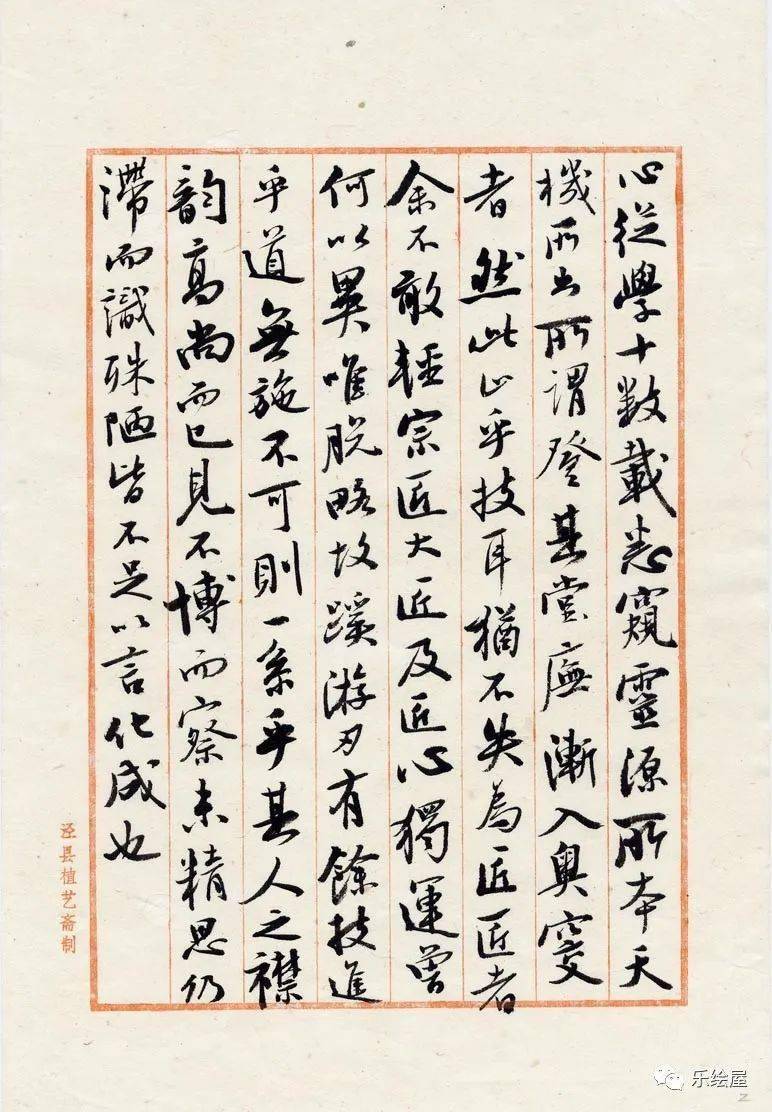 心從學十數載悉窺靈源所本天
機所出所謂登其堂廡漸入奧窔
者然此止乎技耳猶不失為匠匠者
余不敢輕宗匠大匠及匠心獨運嘗
何以異唯脫略故蹊游刃有餘技進
乎道無施不可則一系乎其人之襟
韵高尚而已見不博而察未精思仍
滯而識殊陋皆不足以言化成也
泾县植艺斋制
乐绘屋